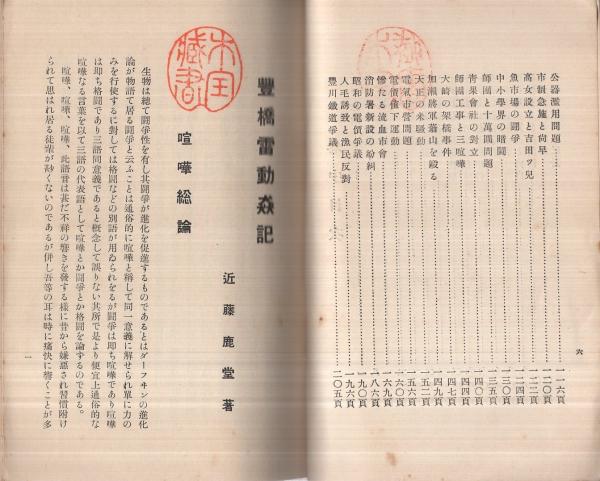 公器濫用問題……一一六頁
市制急施と尚早……一二〇頁
高女設立と吉田ツ兒……一二四頁
魚市場の闘爭……一二二頁
中小學界の暗鬪……一三〇頁
師團と十萬圓問題……一三五頁
靑果會社の對立……一四〇頁
師團工事と三喧嘩……一四四頁
大崎の架橋事件……一四七頁
加瀨將軍蕃山を毆る……一四九頁
天正の米騷動……一五二頁
電氣市營問題……一五六頁
電價値下運動……一六〇頁
慘たる流血市會……一六九頁
消防署新設の紛糾……一八六頁
昭和の電價爭議……一九六頁
人毛誘致と漁民反對……一九九頁
豐川鐵道爭議……二〇五頁
六
豐橋雷動焱記
近藤鹿堂著
喧嘩総論
生物は總て鬪爭性を有し其鬪爭が進化を促進するものであるとはダーヰンの進化
論が物語て居る鬪爭と云ふことは通俗的に喧嘩と稱して同一意義に解せられ單に力の
みを行使するに對しては格鬪などの別語が用ゐられをるが鬪爭は即ち喧嘩であり喧嘩
は即ち格鬪であり三語同意義であると概念して誤りない其所で是より便宜上通俗的な
喧嘩なる言葉を以て三語の代表語として喧嘩とか鬪爭とか格鬪を論ずるのである。
喧嘩、喧嘩、喧嘩、此語音は甚だ不祥の響きを發する樣に昔から嫌惡され習慣附け
られて思はれ居る徒輩が尠くないのであるが併し吾等の耳は時に痛快に響くことが多
一
藏書